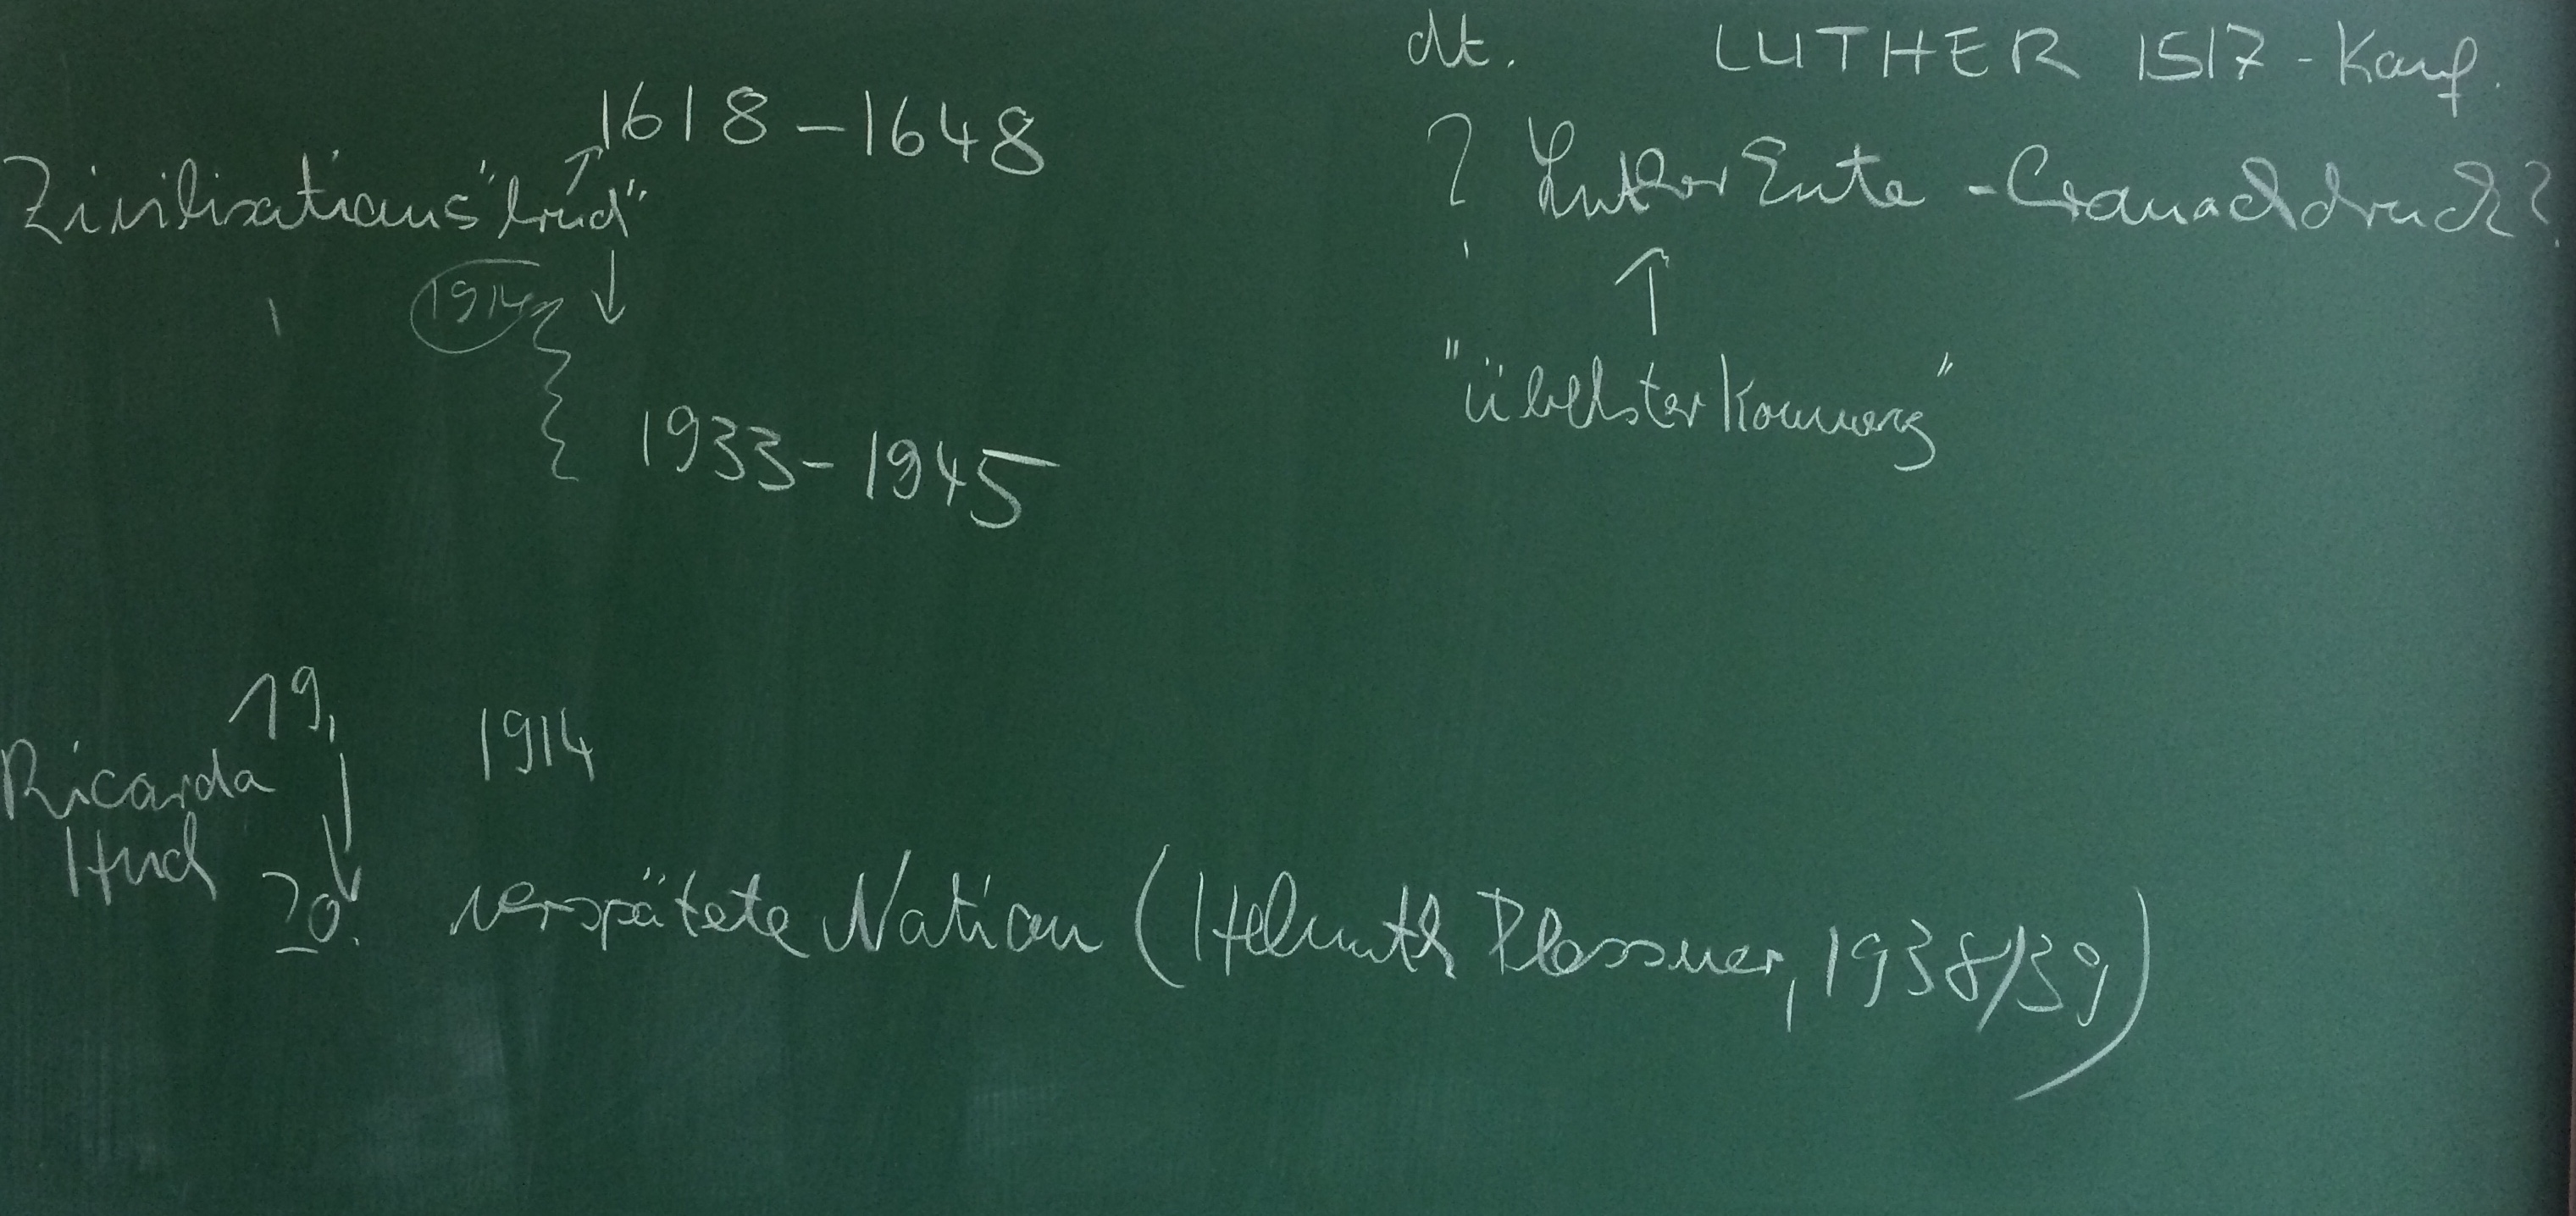 1618 – 1648
Zivilisations"bruch"
1914
1933 – 1945
dt. LUTHER 1517 - Kauf.
? Luther Ente - Cranachdruck?
"übelster Kommerz"
19. 1914
Ricarda
Huch
20. verspätete Nation (Helmuth Plessner, 1938/39)